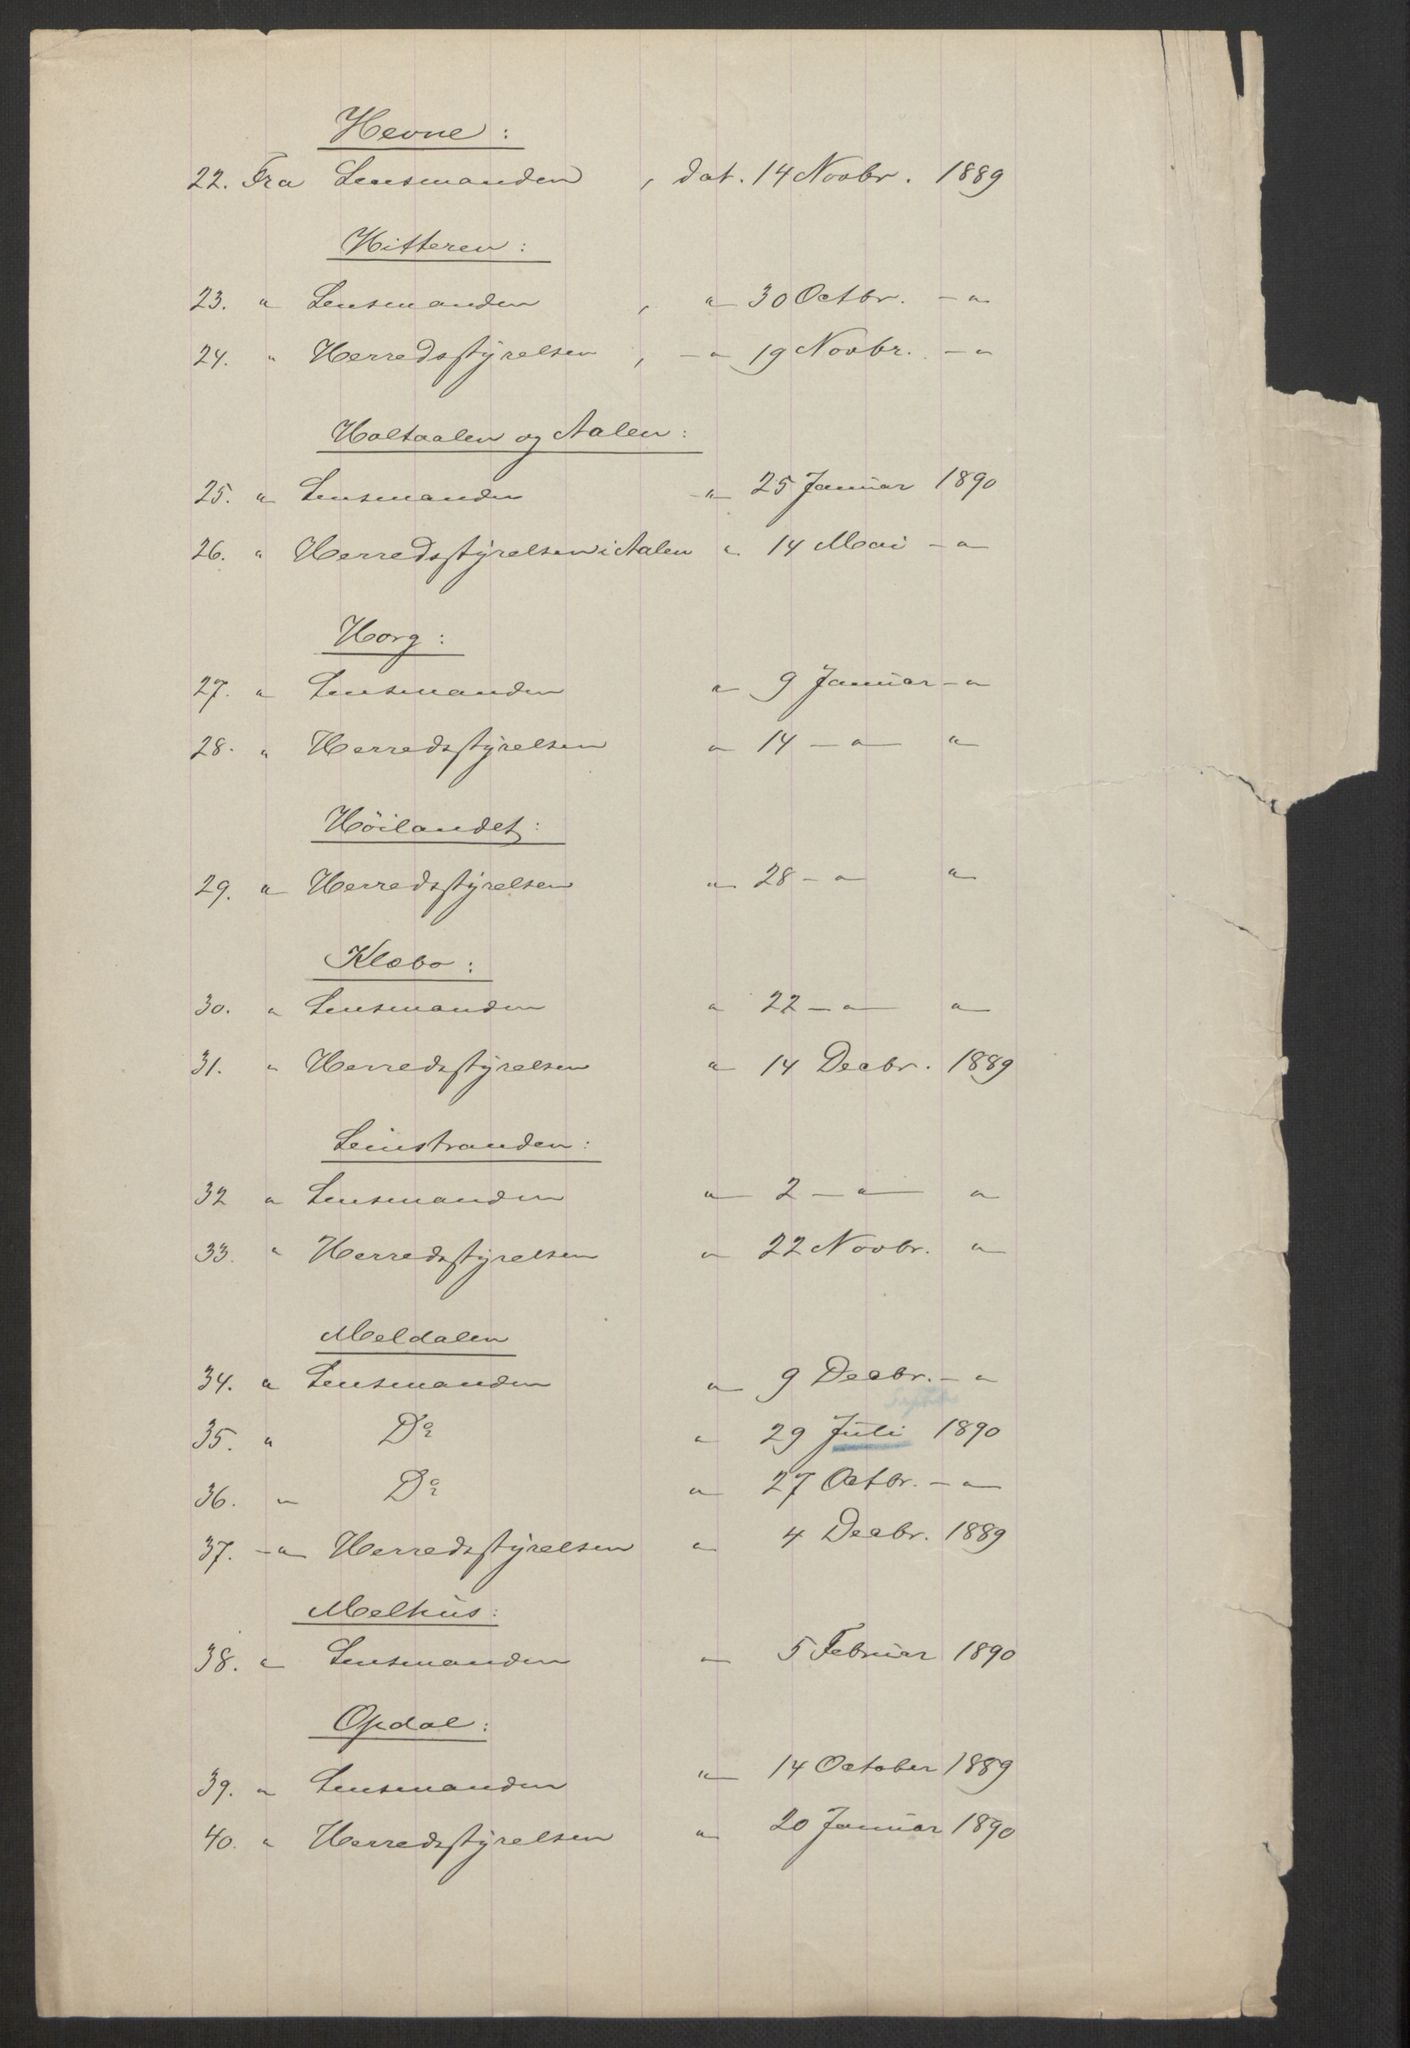 Hevne:
22. Fra Lensmanden , dat. 14 Novbr. 1889
Hitteren:
23. " Lensmanden , " 30 Octbr. - " -
24. " Herredsstyrelsen , - " - 19 Novbr. - " -
Holtaalen og Aalen:
25. " Lensmanden - " - 25 Januar 1890
26. " Herredsstyrelsen i Aalen " 14 Mai - " -
Horg:
27. " Lensmanden " 9 Januar - " -
28. " Herredsstyrelsen " 14 - " - "
Höilandet:
29. " Herredsstyrelsen " 28 - " - "
Klæbo:
30. " Lensmanden " 22 - " - "
31. " Herredsstyrelsen " 14 Decbr. 1889
Leinstranden:
32 " Lensmanden " 2 - " - "
33. " Herredsstyrelsen " 22 Novbr. "
Meldalen
34. " Lensmanden " 9 Decbr. - " -
35. " Do " 29 Juli 1890
36. " Do " 27 Octbr. - " -
37. - " - Herredsstyrelsen " 4 Decbr. 1889
Melhus:
38. " Lensmanden " 5 Februar 1890
Opdal:
39. " Lensmanden " 14 October 1889
40. " Herredsstyrelsen " 20 Januar 1890